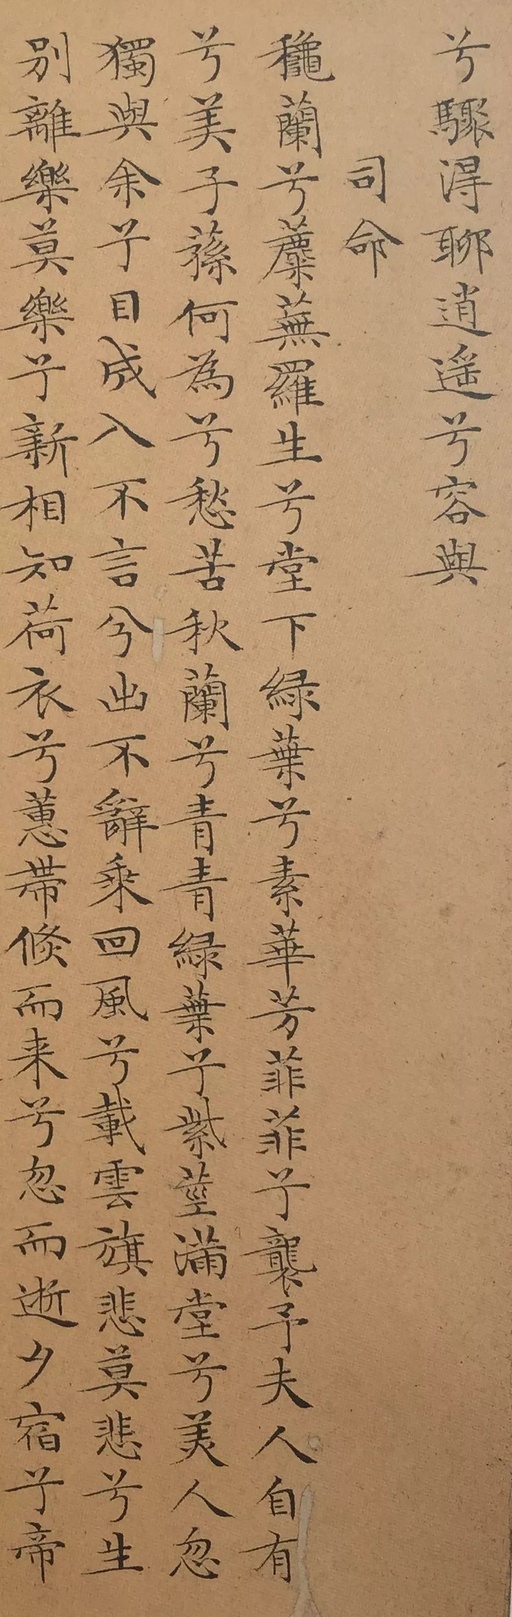 兮驟淂聊逍遥兮容與
司命
穐蘭兮蘪蕪羅生兮堂下緑葉兮素華芳菲菲兮襲予夫人自有
兮美子蓀何為兮愁苦秋蘭兮青青緑葉兮紫莖滿堂兮美人忽
獨與余兮目成入不言兮出不辭乘回風兮載雲旗悲莫悲兮生
別離樂莫樂兮新相知荷衣兮蕙帶倏而来兮忽而逝夕宿兮帝